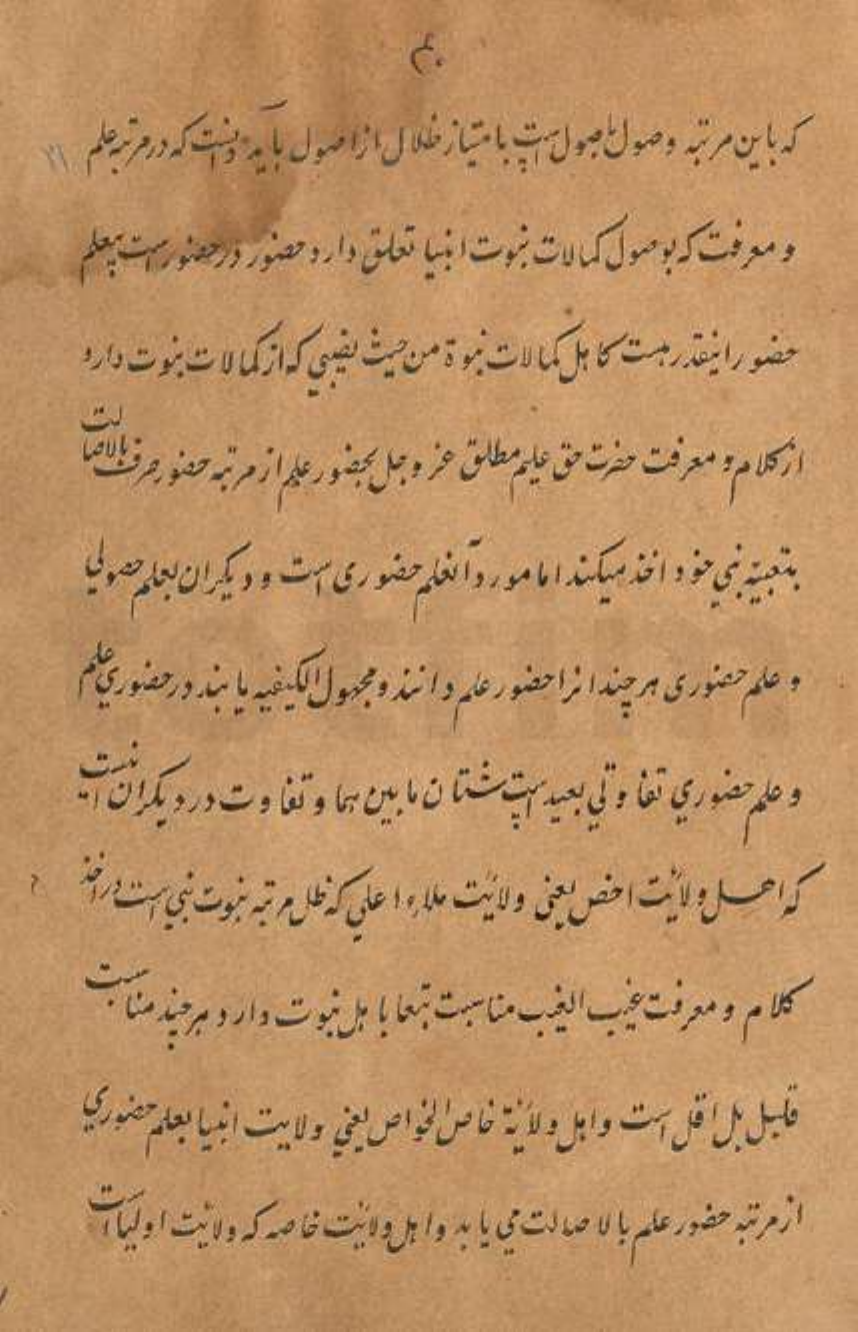 ۴۰
که باین مرتبه وصول باصول است بامتیاز ظلال از اصول باید دانست که در مرتبه علم
و معرفت که بوصول کمالات نبوت انبیا تعلق دارد حضور در حضور است پس علم
حضور را اینقدر هست کاهل کمالات نبوة من حیث نصیبی که از کمالات نبوت دارو
از کلام و معرفت حضرت حق علیم مطلق عز و جل بحضور علم از مرتبه حضور صرف بالاصالت
بتبعیته نبی خود اخذ میکند اما مورد آنعلم حضوری است و دیکران بعلم حصولی
و علم حضوری هر چند انرا حضور علم دانند و مجهول الکیفیه یابند در حضوری علم
و علم حضوری تفاوتی بعید است شتان ما بین هما و تفاوت در دیکران نیست
که اهل ولائیت اخص یعنی ولائیت ملاء اعلی که ظل مرتبه نبوت نبی است در اخذ
کلام و معرفت غیب الغیب مناسبت تبعا با اهل نبوت دارد هر چند مناسبت
قلیل بل اقل است و اهل ولائیة خاص الخواص یعنی ولایت انبیا بعلم حضوری
از مرتبه حضور علم بالاصالت می یابد و اهل ولائیت خاصه که ولائیت اولیا است